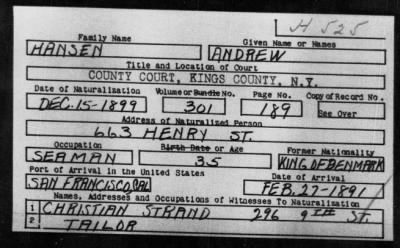 H 525
Family Name Given Name or Names
HANSEN ANDREW
Title and Location of Court
COUNTY COURT, KINGS COUNTY, N.Y.
Date of Naturalization Volume or Bundle No. Page No. Copy of Record No.
DEC. 15-1899 301 189 See Over
Address of Naturalized Person
663 HENRY ST.
Occupation Birth Date or Age Former Nationality
SEAMAN 35 KING OF DENMARK
Port of Arrival in the United States Date of Arrival
SAN FRANCISCO, CAL FEB. 27-1891
Names, Addresses and Occupations of Witnesses To Naturalization
1 CHRISTIAN STRAND 296 9TH ST.
2 TAILOR